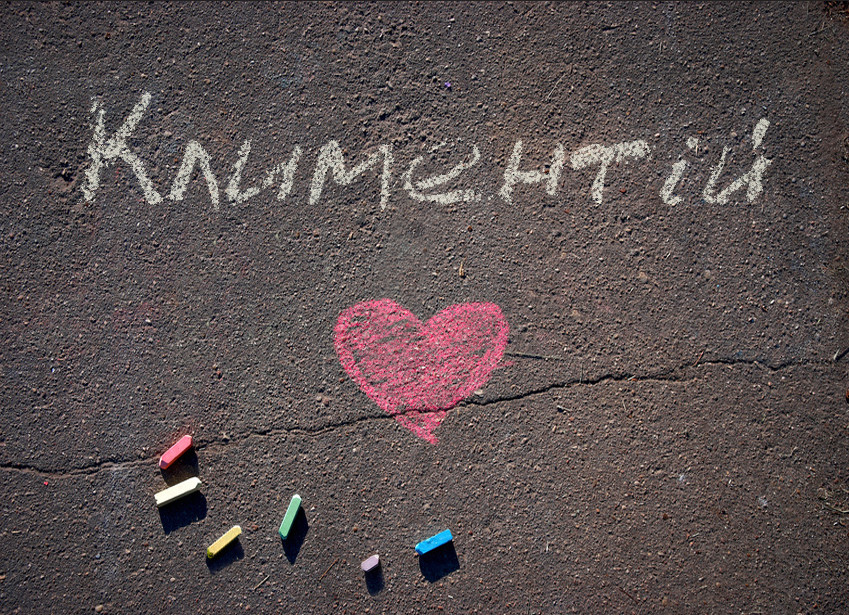 Климентій